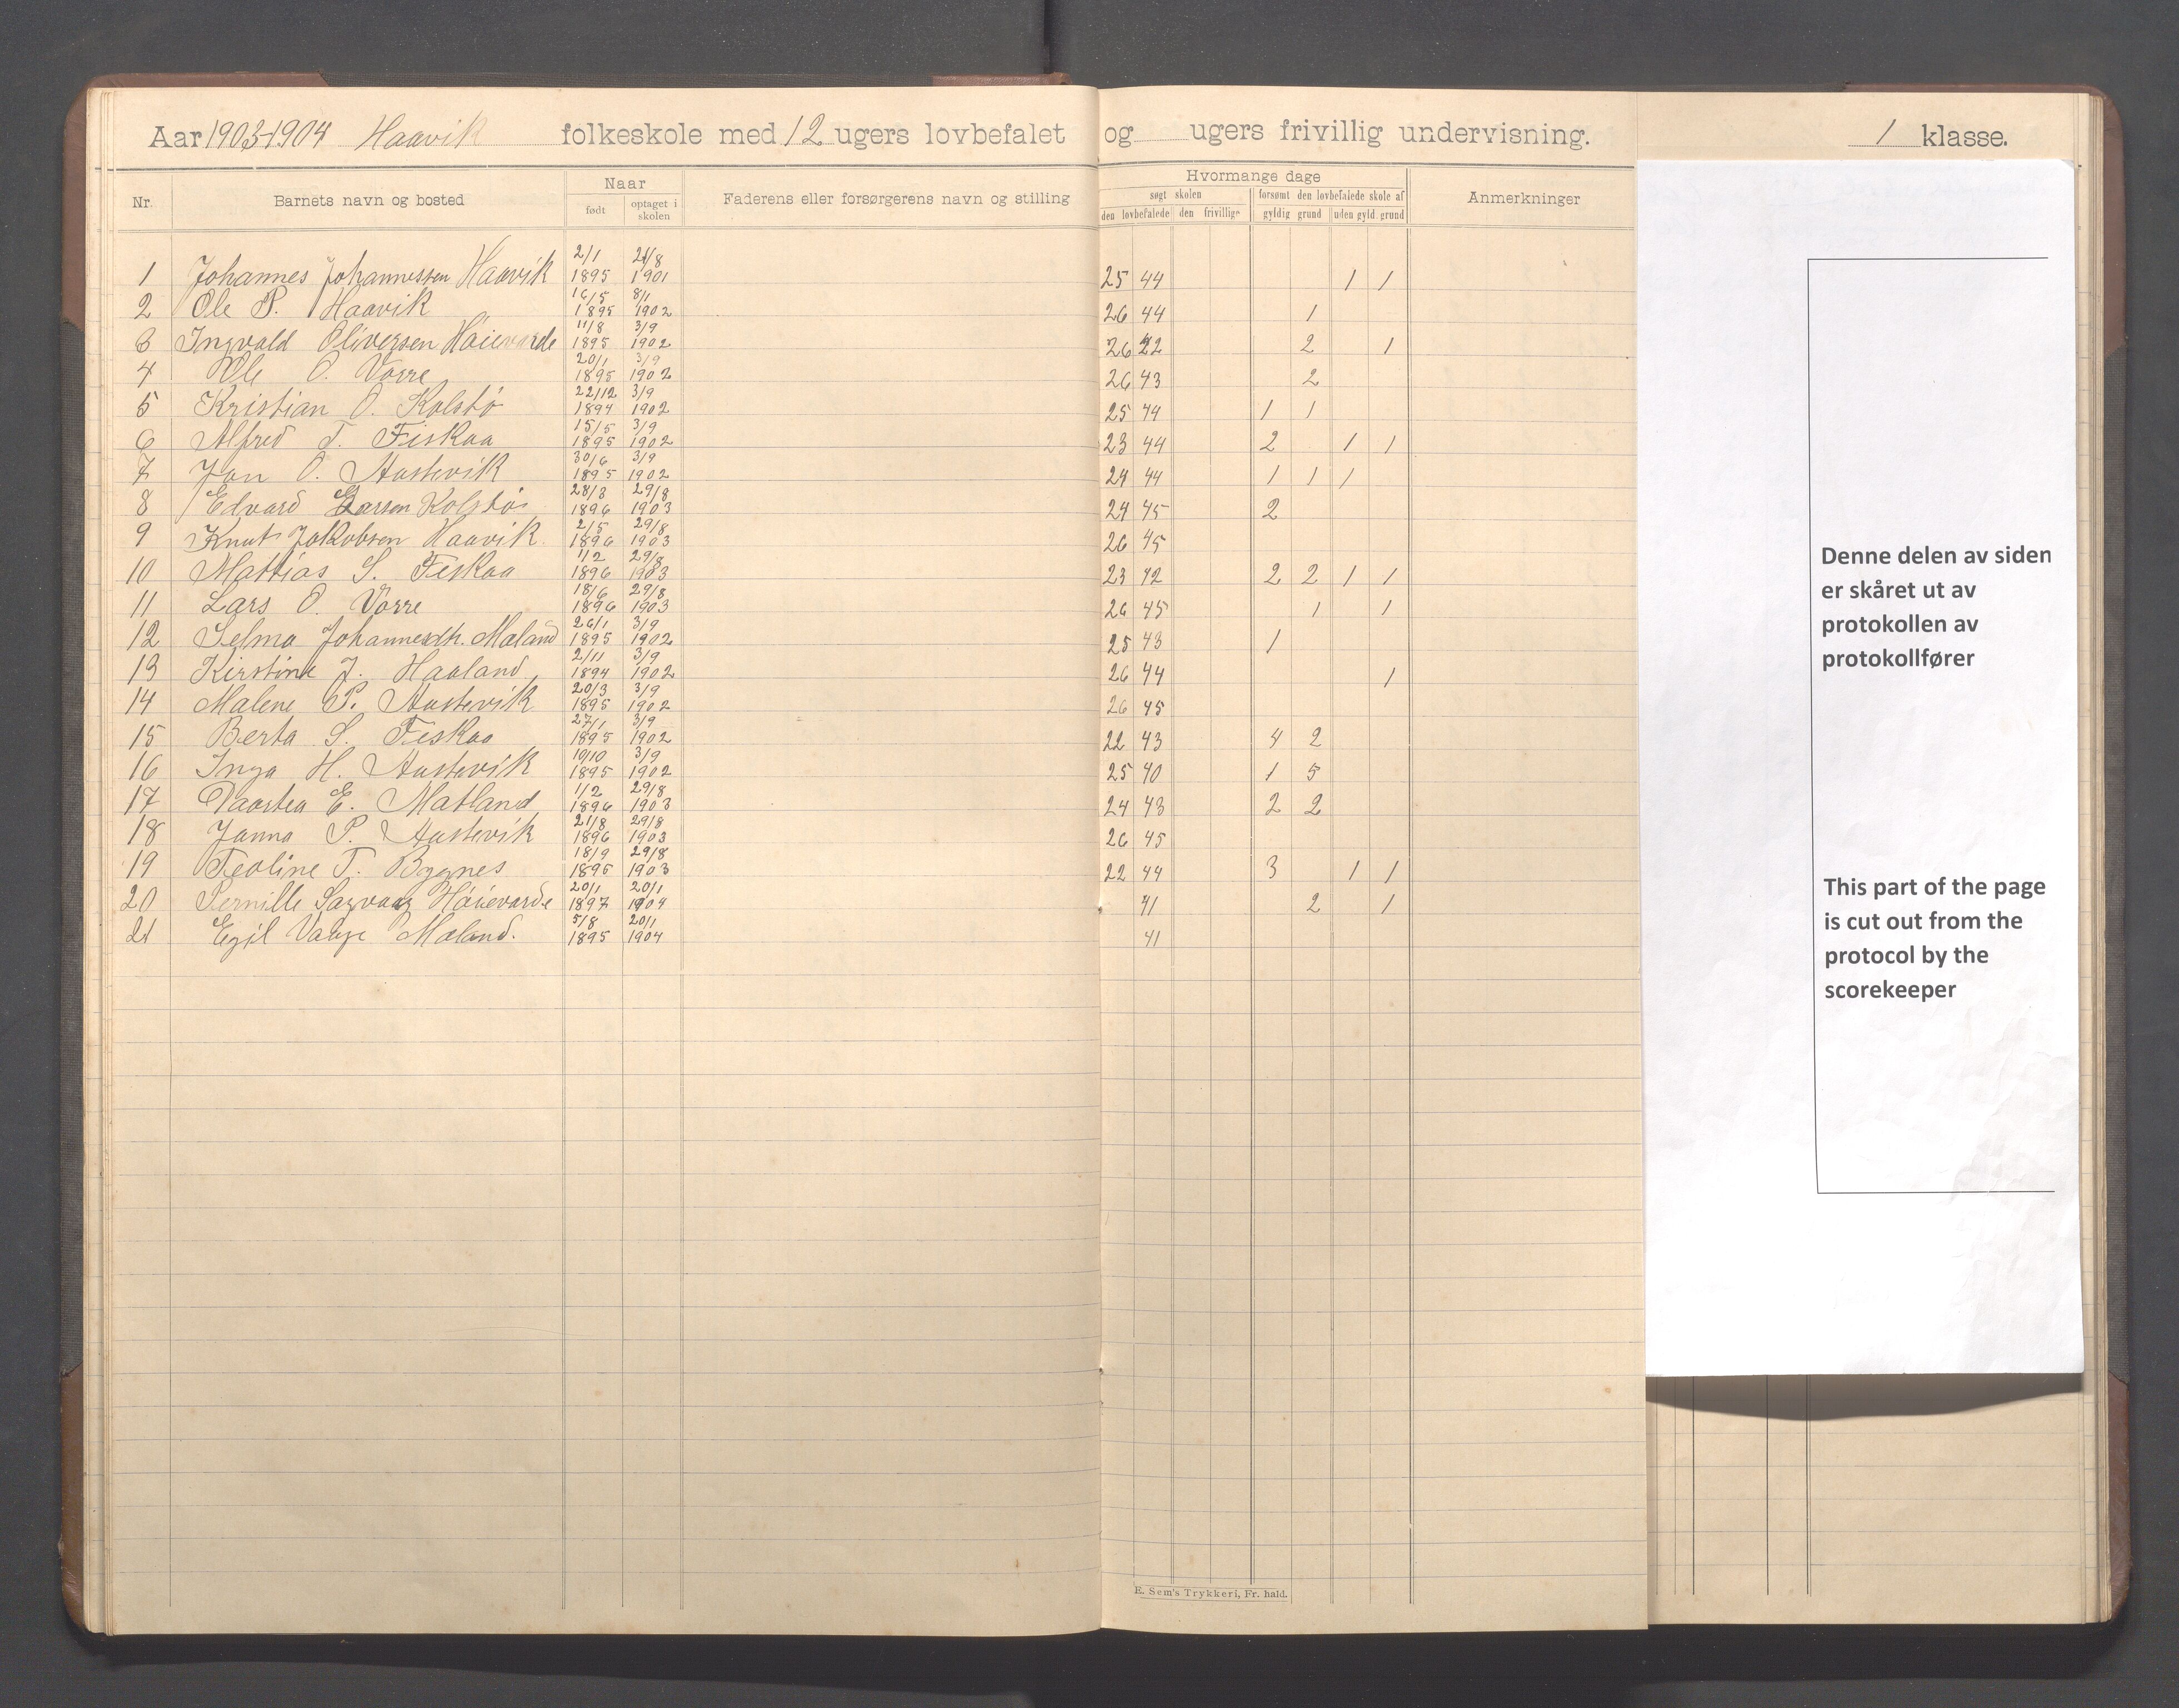 Aar 1903-1904 Haavik folkeskole med 12 ugers lovbefalet og ugers frivillig undervisning. 1 klasse.
Nr. Barnets navn og bosted Naar født optaget i skolen Faderens eller forsørgerens navn og stilling Hvormange dage søgt skolen den lovbefalede den frivillige forsømt den lovbefalede skole af gyldig grund uden gyld. grund Anmerkninger
1 Johannes Johannessen Haavik 2/1 1895 21/8 1901 25 44 1 1
2 Ole P. Haavik 16/5 1895 8/1 1902 26 44 1
3 Ingvald Oliversen Høievarde 11/8 1895 3/9 1902 26 22 2 1
4 Ole O. Vorre 20/1 1895 3/9 1902 26 43 2
5 Kristian O. Kolstø 22/12 1894 3/9 1902 25 44 1 1
6 Alfred T. Fiskaa 15/5 1895 3/9 1902 23 44 2 1 1
7 Jan O. Austevik 30/6 1895 3/9 1902 24 44 1 1 1
8 Edvard Larsen Kolstø 28/3 1896 29/8 1903 24 45 2
9 Knut Jakobsen Haavik 2/5 1896 29/8 1903 26 45
10 Mattias S. Fiskaa 1/2 1896 29/8 1903 23 42 2 2 1 1
11 Lars O. Vorre 18/6 1896 29/8 1903 26 45 1 1
12 Selma Johannesdt. Maland 26/1 1895 3/9 1902 25 43 1
13 Kirstine J. Haaland 2/11 1894 3/9 1902 26 44 1
14 Malene P. Austevik 20/3 1895 3/9 1902 26 45
15 Berta S. Fiskaa 27/1 1895 3/9 1902 22 43 4 2
16 Inga H. Austevik 10/10 1895 3/9 1902 25 40 1 5
17 Daartea E. Matland 1/2 1896 29/8 1903 24 43 2 2
18 Janna P. Austevik 21/8 1896 29/8 1903 26 45
19 Teoline T. Bygnes 18/9 1895 29/8 1903 22 44 3 1 1
20 Pernille Sagvaag Høievarde 20/1 1897 20/1 1904 41 2 1
21 Egil Vaage Maland. 5/8 1895 20/1 1904 41
Denne delen av siden
er skåret ut av
protokollen av
protokollfører
This part of the page
is cut out from the
protocol by the
scorekeeper
E. Sem's Trykkeri, Fr. hald.